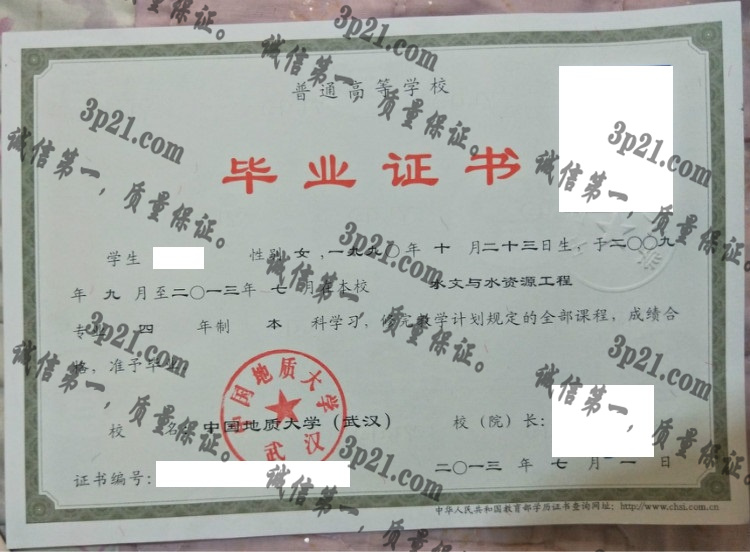 普通高等学校
毕业证书
学生 性别 女 ,一九九〇年 十 月二十三日生，于二〇〇九
年 九 月至二〇一三年 七 月在本校 水文与水资源工程
专业 四 年制 本 科学习，修完教学计划规定的全部课程，成绩合
格，准予毕业
校 名：中国地质大学（武汉） 校（院）长：
二〇一三 年 七 月 一 日
证书编号：
中华人民共和国教育部学历证书查询网址：http://www.chsi.com.cn
中国地质大学
武汉
3p21.com
诚信第一，质量保证。
3p21.com
诚信第一，质量保证。
3p21.com
诚信第一，质量保证。
3p21.com
诚信第一，质量保证。
3p21.com
诚信第一，质量保证。
3p21.com
诚信第一，质量保证。
3p21.com
诚信第一，质量保证。
诚信第一，质量保证。